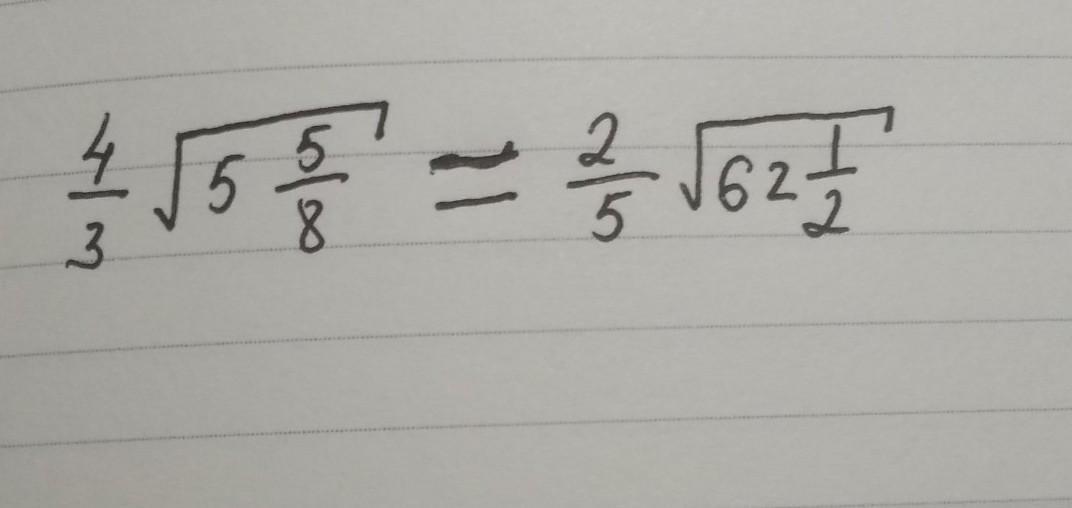 4/3 √(5 5/8) = 2/5 √(62 1/2)